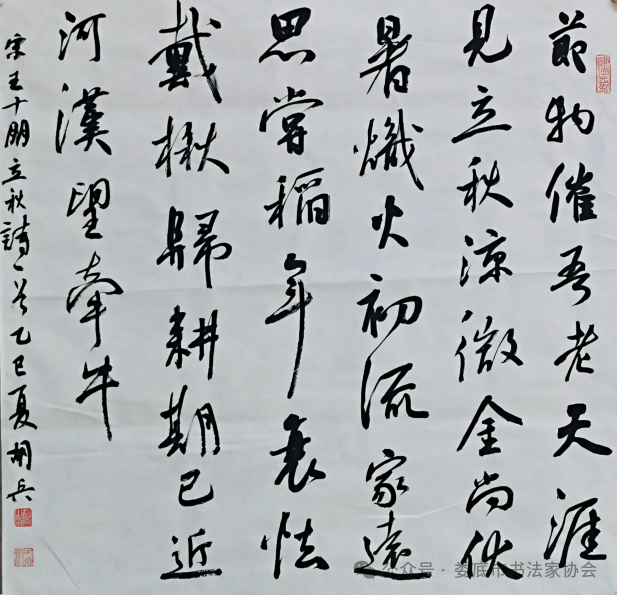 節物催吾老天涯
見立秋涼微金尚伏
暑熾火初流家遠
思嘗稻年衰怯
戴楸歸耕期已近
河漢望牽牛
宋王十朋立秋詩一首乙巳夏胡兵
公众号·娄底市书法家协会